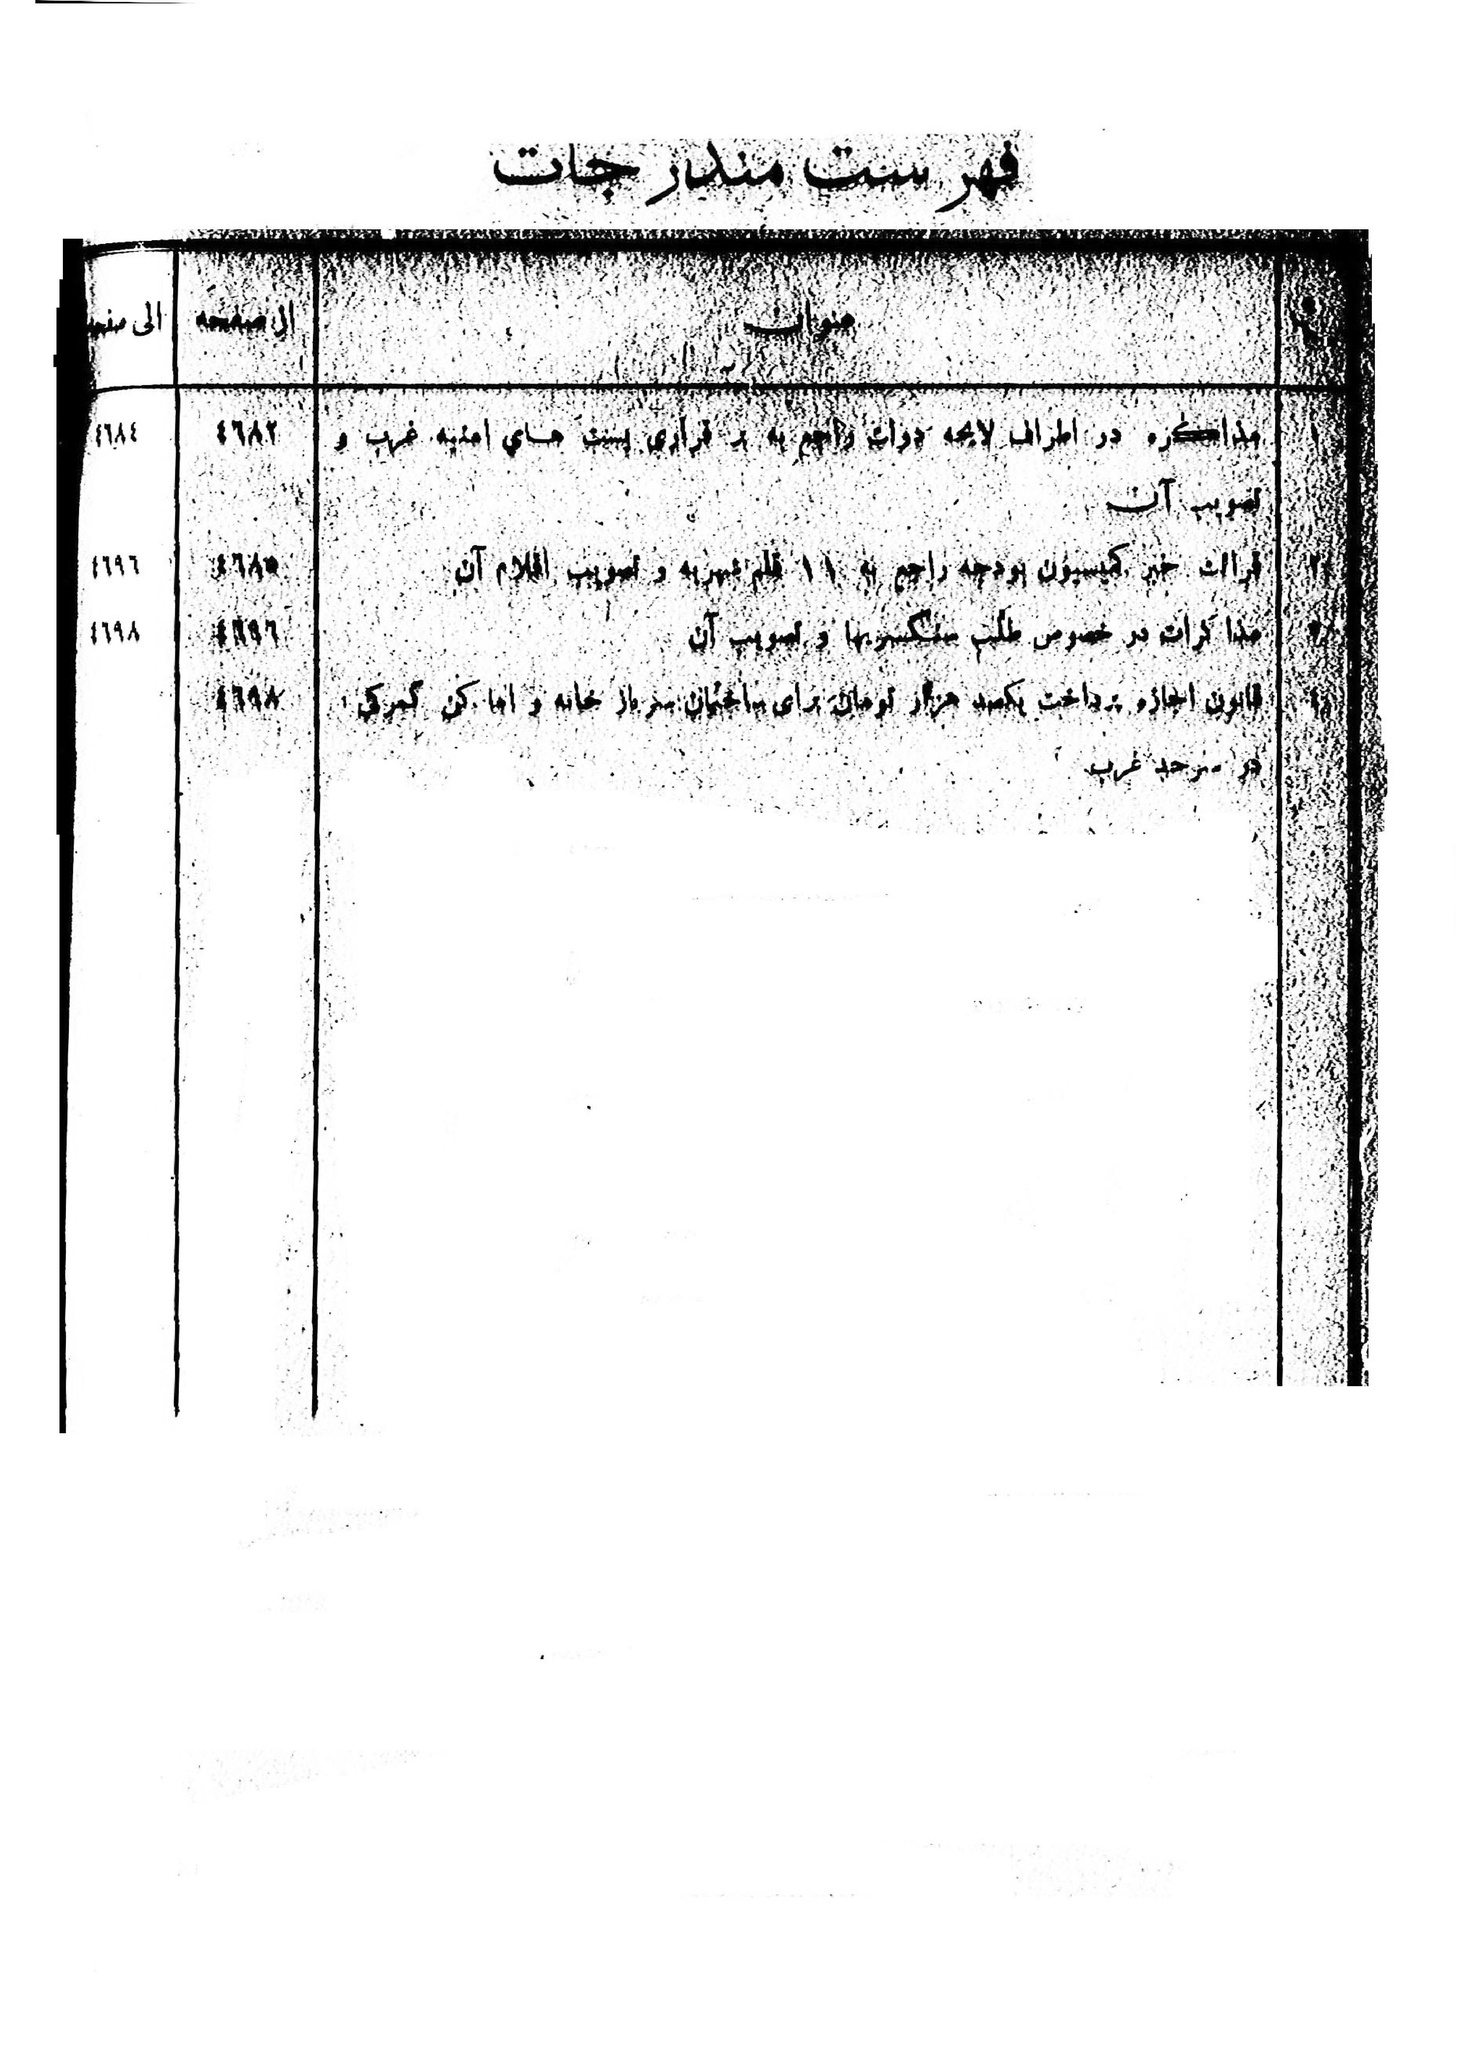 فهرست مندرجات
عنوان از صفحه الی صفحه
۱ مذاکره در اطراف لایحه دولت راجع به بر قراری پست های امنیه غرب و ٤٦٨٢ ٤٦٨٤
تصویب آن
۲ قرائت خبر کمیسیون بودجه راجع به ۱۱ قلم شهریه و تصویب اقلام آن ٤٦٨٥ ٤٦٩٦
۳ مذا کرات در خصوص طلب منگسریها و تصویب آن ٤٦٩٦ ٤٦٩٨
٤ قانون اجازه پرداخت یکصد هزار تومان برای ساختمان سرباز خانه و اما کن گمرکی ٤٦٩٨
در سرحد غرب